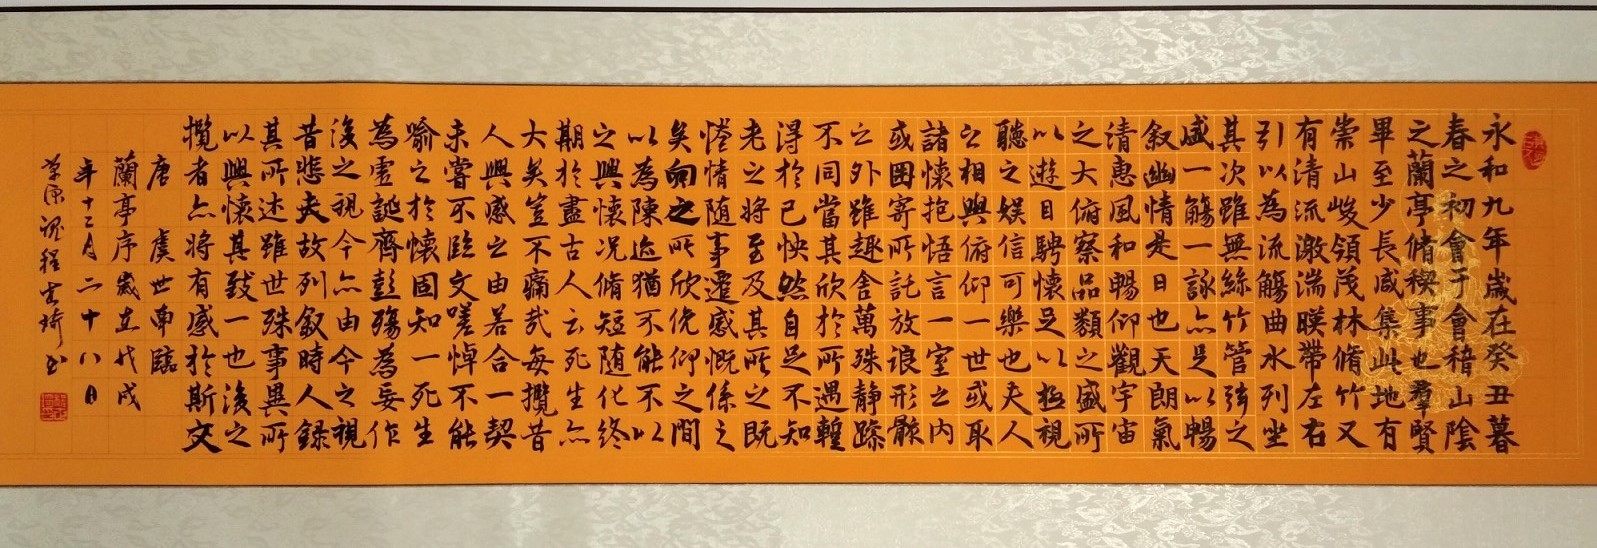 永和九年歲在癸丑暮
春之初會于會稽山陰
之蘭亭脩稧事也羣賢
畢至少長咸集此地有
崇山峻領茂林脩竹又
有清流激湍暎帶左右
引以為流觴曲水列坐
其次雖無絲竹管弦之
盛一觴一詠亦足以暢
敘幽情是日也天朗氣
清惠風和暢仰觀宇宙
之大俯察品類之盛所
以遊目騁懷足以極視
聽之娛信可樂也夫人
之相與俯仰一世或取
諸懷抱悟言一室之內
或因寄所託放浪形骸
之外雖趣舍萬殊静躁
不同當其欣於所遇蹔
得於己怏然自足不知
老之將至及其所之既
惓情随事遷感慨係之
矣向之所欣俛仰之間
以為陳迹猶不能不以
之興懷況脩短随化終
期於盡古人云死生亦
大矣豈不痛哉每攬昔
人興感之由若合一契
未嘗不臨文嗟悼不能
喻之於懷固知一死生
為虛誕齊彭殤為妄作
後之視今亦由今之視
昔悲夫故列敘時人錄
其所述雖世殊事異所
以興懷其致一也後之
攬者亦將有感於斯文
唐 虞世南臨
蘭亭序歲在戊戌
年十二月二十八日
程 書